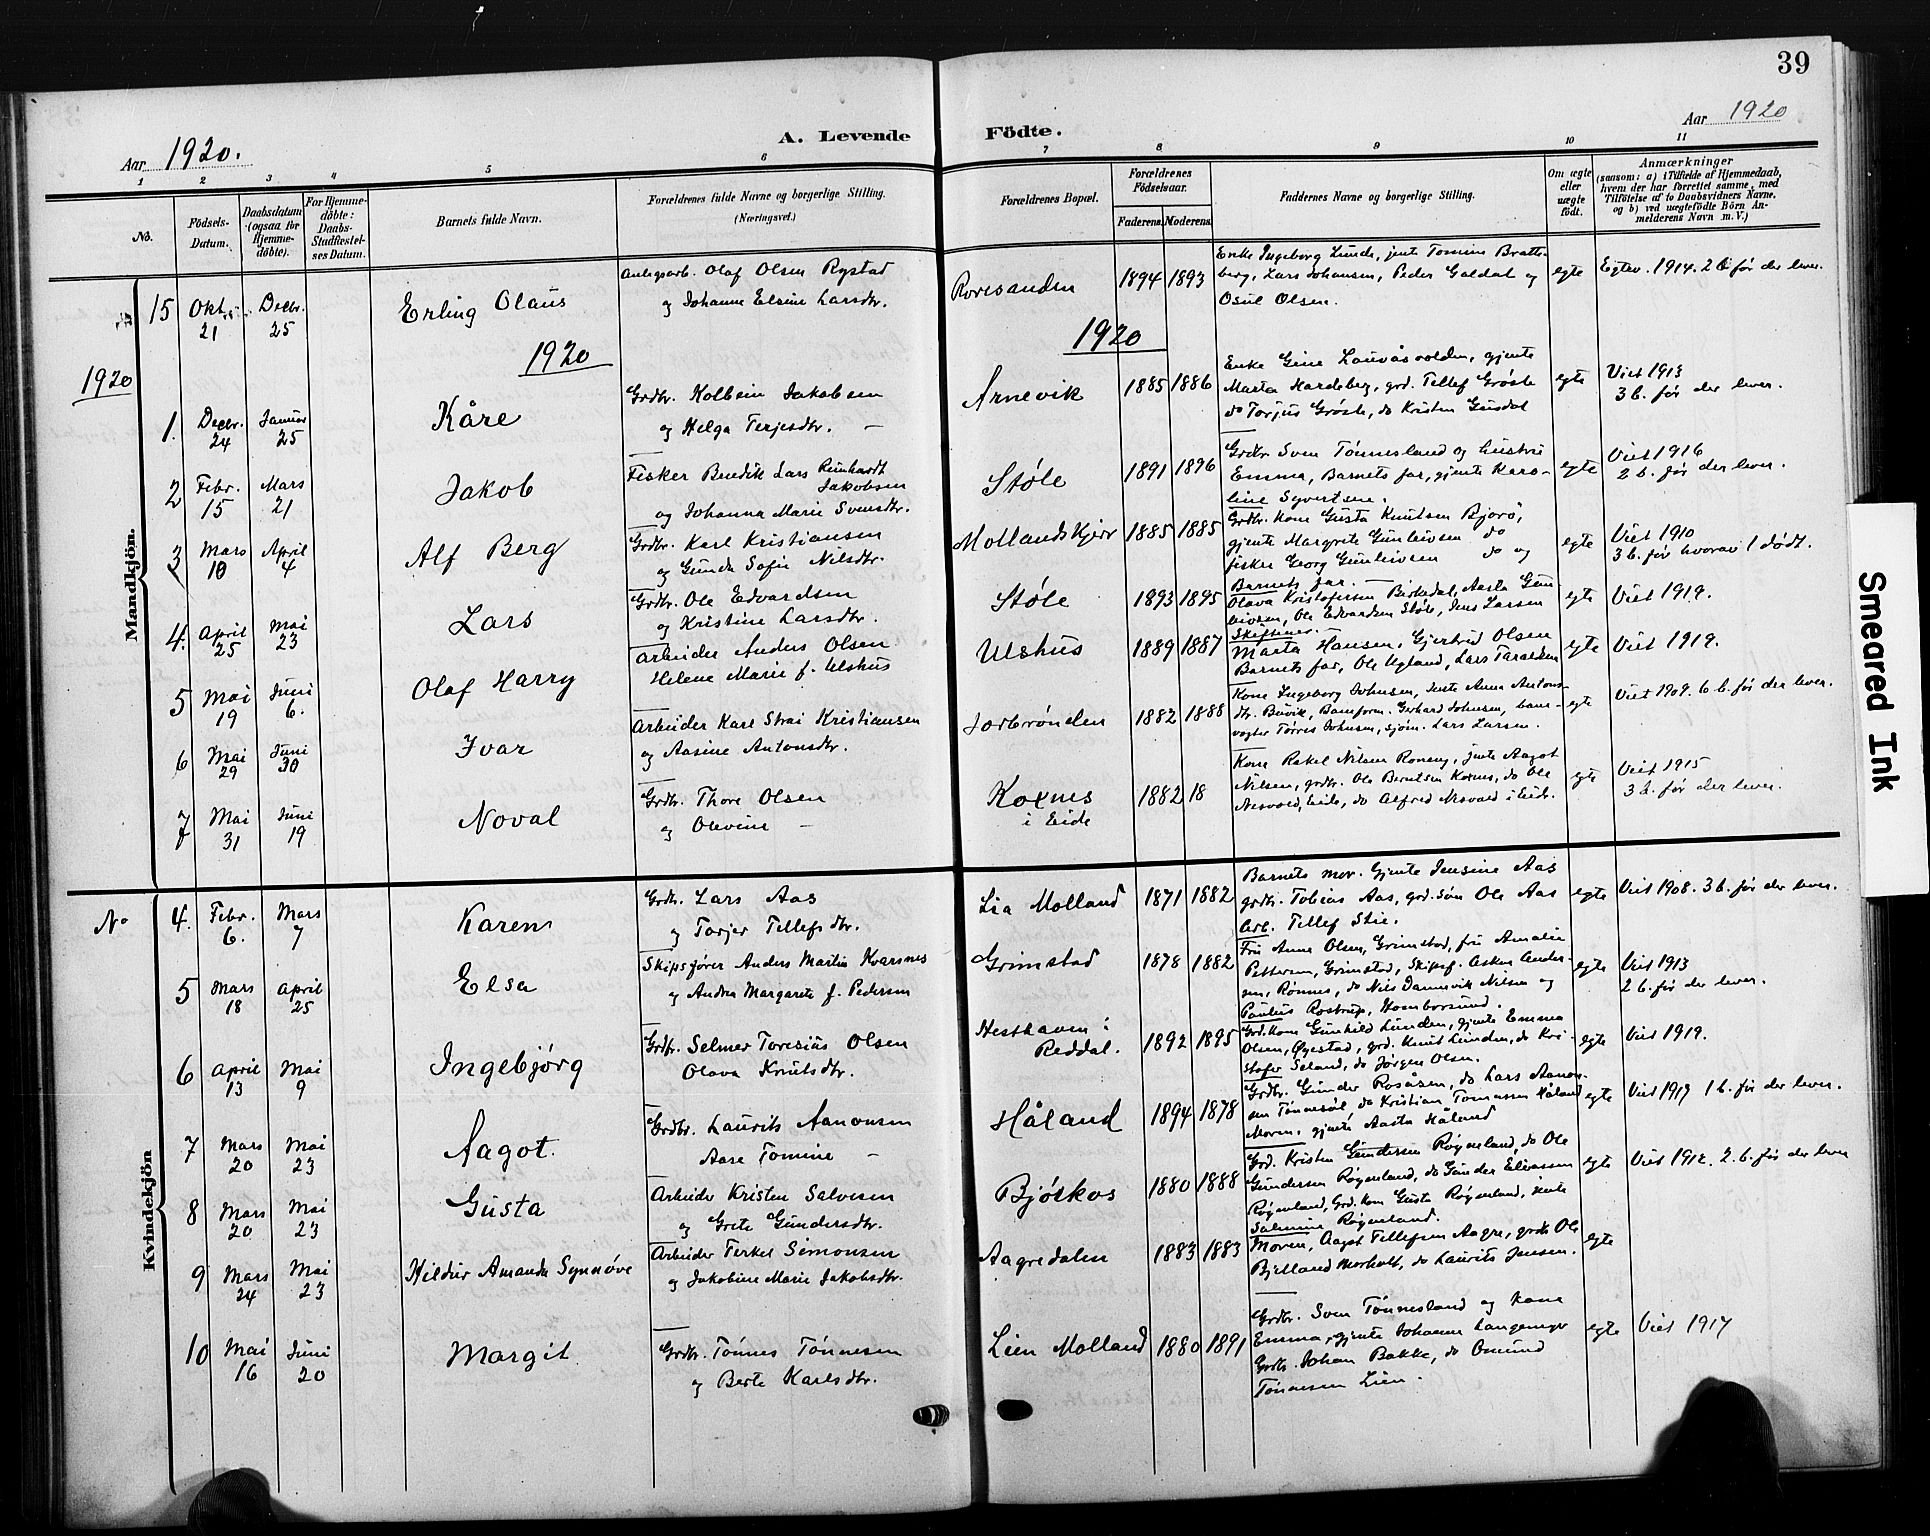 39
Aar 1920.
A. Levende Födte.
Aar 1920
1 2 3 4 5 6 7 8 9 10 11
No.
Födsels-Datum.
Daabsdatum (ogsaa for Hjemme-döbte).
For Hjemme-döbte: Daabs-Stadfæstel-ses Datum.
Barnets fulde Navn.
Forældrenes fulde Navne og borgerlige Stilling. (Næringsvei.)
Forældrenes Bopæl.
Forældrenes Födselsaar.
Faderens. Moderens.
Faddernes Navne og borgerlige Stilling.
Om ægte eller uægte födt.
Anmærkninger
(saasom: a) i Tilfælde af Hjemmedaab,
hvem der har forrettet samme, med
Tilföielse af to Daabsvidners Navne,
og b) ved uægtefödte Börn An-
melderens Navn m. V.)
15 Okt. 21 Decbr. 25 Erling Olaus
Anlegsarb. Olaf Olsen Rystad
og Johanne Elsine Larsdtr.
Roresanden 1894 1893
Enke Ingeborg Lunde, jent Tomine Bratte-
berg, Lars Johansen, Peder Galdal og
Osul Olsen.
egte
Egtev. 1914. 2 b før der lever.
1920 1920 1920
Mandkjön.
1. Decbr. 24 Januar 25 Kåre
Grdbr. Kolbein Jakobsen
og Helga Terjesdtr.
Arnevik 1885 1886
Enke Gine Lauvåsvolden, gjente
Marta Hardeberg, grd. Tellef Grøsle
do Torjus Grøsle, do Kristen Gusdal
egte
Viet 1913
3 b. før der lever.
2 Febr. 15 Mars 21 Jakob
Fisker Bendik Lars Reinhardt
Jakobsen
og Johanna Marie Svensdtr.
Støle 1891 1896
Grdbr Sven Tønnesland og hustru
Emma, Barnets far, gjente Karo-
line Syvertsen.
egte
Viet 1916
2 b. før der lever.
3 Mars 10 April 4 Alf Berg
Grdbr. Karl Kristiansen
og Gunda Sofie Nilsdtr.
Mollandskjær 1885 1885
Grdbr. kone Gusta Knutsen Bjorø,
gjente Margrete Gunleivsen do
fisker Georg Gunleivsen do og
Barnets far.
egte
Viet 1910
3 b. før hvorav 1 dødt.
4. April 25 Mai 23 Lars
Grdbr. Ole Edvardsen
og Kristine Larsdtr.
Støle 1893 1895
Olava Kristofersen Birkedal, Aasta Gun
leivsen, Ole Edvardsen Støle, Jens Larsen
Skiftenes.
egte
Viet 1919.
5 Mai 19 Juni 6. Olaf Harry
Arbeider Anders Olsen
Helene Marie f. Ulshus
Ulshus 1889 1887
Marta Hansen, Gjertrud Olsen
Barnets far, Ole Ugland, Lars Taraldsen
egte
Viet 1919.
6 Mai 29 Juni 30 Ivar
Arbeider Karl Strai Kristiansen
og Aasine Antonsdtr.
Jorbrønden 1882 1888
Kone Ingeborg Johnsen, Jente Anna Antons-
dtr. Buvik, Banform. Gerhard Johnsen, ban-
vogter Tørres Johnsen, sjøm. Lars Larsen.
egte
Viet 1909. 6 b. før der lever.
7 Mai 31 Juni 19 Noval
Grdbr. Thore Olsen
og Olevine
Koxnes
i Eide
1882 18
Kone Rakel Nilsen Romeny, jente Aagot
Nilsen, grdbr. Ole Berntsen Koxnes, do Ole
Nesvoed, Eide, do Alfred Nesvoed i Eide.
egte
Viet 1915
3 b. før der lever.
No
Kvindekjön
4. Febr. 6. Mars 7 Karen
Grdbr. Lars Aas
og Torjer Tellefsdtr.
Lia Molland 1871 1882
Barnets mor. Gjente Jensine Aas
grdbr. Tobias Aas, grd. søn Ole Aas
Arb. Tellef Stie.
egte
Viet 1908. 3 b. før der lever.
5 Mars 18 April 25 Elsa
Skipsfører Anders Martin Kvarsnes
og Andrea Margarete f. Pedersen
Grimstad 1878 1882
Fru Anna Olsen, Grimstad, fru Amalie
Pettersen, Grimstad, Skipsf. Askur Ander-
sen, Rønnes, do Nils Dannevik Nilsen og
Paulius Rostrup, Homborsund.
egte
Viet 1913
2 b. før der lever.
6 April 13 Mai 9 Ingebjørg
Grdbr. Selmer Toresius Olsen
Olava Knutsdtr.
Hesthaven i
Reddal.
1892 1895
Grd. kone Gunhild Lunden, gjente Emma
Olsen, Øyestad, grd. Knut Lunden, do Kri-
stofer Seland, do Jørgen Olsen.
egte
Viet 1919.
7 Mars 20 Mai 23 Aagot.
Grdbr. Laurits Aanonsen
Aase Tomine
Håland 1894 1878
Grdbr. Gunder Rosåsen, do Lars Aanon-
sen Tønnesøl, do Kristian Tomassen Håland
Moren, gjente Aasta Håland
egte
Viet 1917 1 b. før der lever.
8 Mars 20 Mai 23 Gusta
Arbeider Kristen Salvesen
og Grete Gundersdtr.
Bjørkos 1880 1888
Grd. Kristen Gundersen Røgenland, do Ole
Gundersen Røgenland, do Gunder Eliassen
Røgenland, Grd. kone Gusta Røgenland, jente
Salmine Røgenland.
egte
Viet 1912. 2. b. før der lever
9 Mars 24 Mai 23 Hildur Amanda Synnøve
Arbeider Terkel Simonsen
og Jakobine Marie Jakobsdtr.
Aagredalen 1883 1883
Moren, Aagot Tellefsen Aagre, grdb. Ole
Bjelland Morholt, do Laurits Jensen.
egte
10 Mai 16 Juni 20 Margit
Grdbr. Tønnes Tønnesen
og Berte Karlsdtr.
Lien Molland 1880 1891
Grdbr. Sven Tønnesland og kone
Emma, gjente Johanne Langemyr
Grdbr. Johan Bakke, do Omund
Tønnesen Lien.
egte
Viet 1917
Smeared Ink